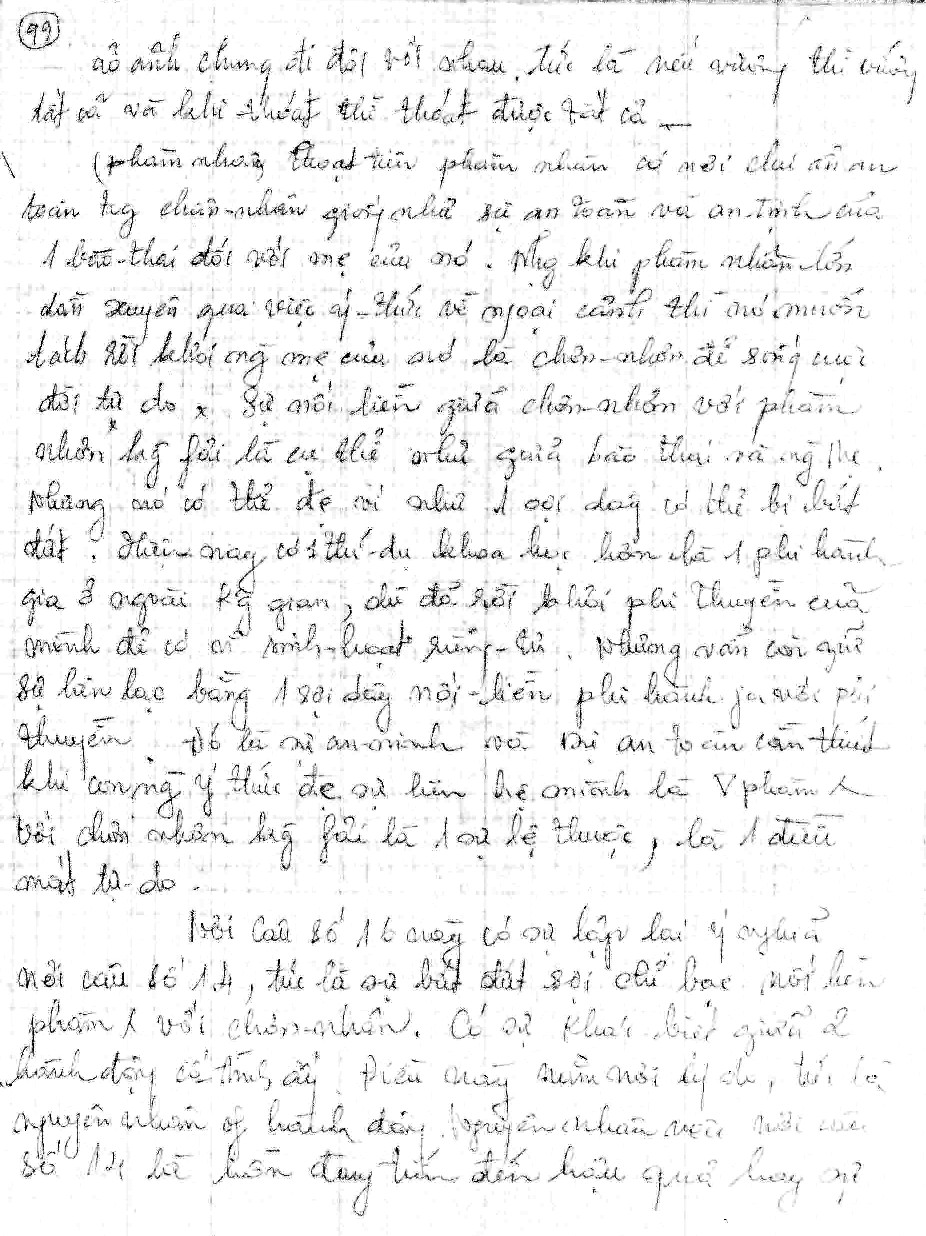 99
ảo ảnh chung đi đôi với nhau, tức là nếu vướng thì vướng
tất cả và khi thoát thì thoát được tất cả _
(phàm nhân) Thoạt tiên phàm nhân có nơi chú ẩn an
toàn trg chân-nhân giống như sự an toàn và an-tịnh của
1 bào-thai đối với mẹ của nó. Nhg khi phàm nhân lớn
dần xuyên qua việc ý-thức về ngoại cảnh thì nó muốn
tách rời khỏi ng mẹ của nó là chân-nhân để sống cuộc
đời tự do x Sự nối liền giữa chân-nhân với phàm
nhân kg fải là cụ thể như giữa bào thai và ng Mẹ.
Nhưng nó có thể đc ví như 1 sợi dây có thể bị bứt
đứt. Hiện nay có 1 thí-dụ khoa học hơn là 1 phi hành
gia ở ngoài kg gian, dù đã rời khỏi phi thuyền của
mình để có sinh-hoạt riêng-tư. Nhưng vẫn còn giữ
sự liên lạc bằng 1 sợi dây nối-liền phi hành ja với phi
thuyền. Đó là sự an-ninh và sự an toàn cần thiết
khi con ng ý thức đc sự liên hệ mình là phàm
với chơn nhân kg fải là 1 sự lệ thuộc, là 1 điều
mất tự-do.
Với Câu số 16 này có sự lập lại ý nghĩa
nơi câu số 14, tức là sự bứt đứt sợi chỉ bạc nối liền
phàm với chơn-nhân. Có sự khác biệt giữa 2
hành động cố tình ấy. Điều này nằm nơi lý do, tức là
nguyên nhân of hành động. Nguyên nhân nơi câu
số 14 là hồn đang tiến đến hậu quả hay sự